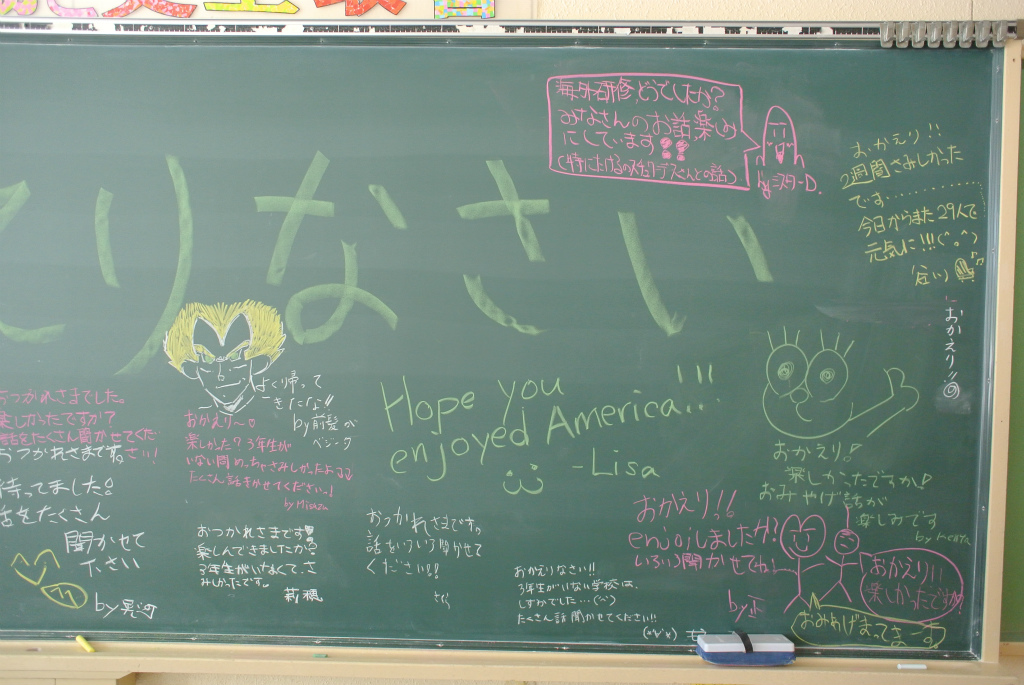 えりなさい
海外研修、どうでしたか?
みなさんのお話、楽しみ
にしています!!
by ミスターD.
おかえり!!
2週間さみしかった
です…………
今日からまた29人で
元気に!!!(^o^)
おかえり!!
よく帰って
きたな!!
by 前髪が
ベジータ
Hope you
enjoyed America!!!
-Lisa
おつかれさまでした。
楽しかったですか?
話をたくさん聞かせてくださいね!
おつかれさまです。
待ってました!
話をたくさん
聞かせて
下さい
おかえり~
楽しかった?3年生が
いない間めっちゃさみしかったよ
たくさん話をきかせてください
by Misuzu
おつかれさまです!
楽しんできましたか?
3年生がいなくて、さ
みしかったです。
おつかれさまです。
話をいろいろ聞かせて
ください!!
さくら
おかえりなさい!!
3年生がいない学校は、
しずかでした…(^^)
たくさん話聞かせてください!!
おかえり!
楽しかったですか!
おみやげ話が
楽しみです
by Kenta
おかえりっ!
enjoiしましたか?
いろいろ聞かせてね!
おかえり!!
楽しかったですか?
おみやげまってまーす